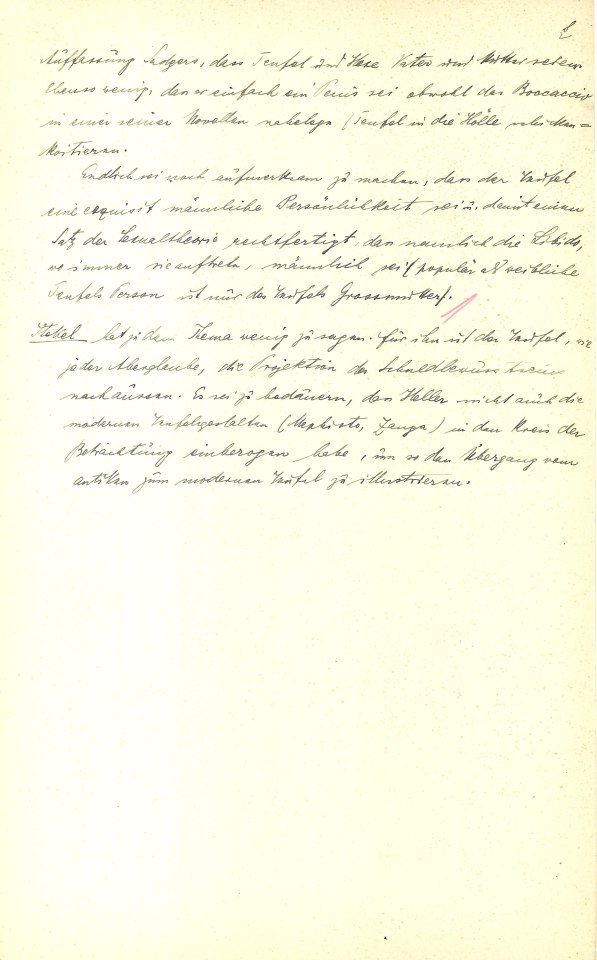 Auffassung Sadgers, dass Teufel und Hexe Vater und Mutter seien.
Ebenso wenig, dass er einfach ein Penis sei obwohl das Boccaccio
in einer seiner Novellen nahelege (Teufel in die Hölle schicken =
Koitieren.
Endlich sei noch aufmerksam zu machen, dass der Teufel
eine exquisit männliche Persönlichkeit sei u. damit einen
Satz der Sexualtheorie rechtfertigt, dass namlich die Libido,
wo immer sie auftrete, männlich sei (populär als weibliche
Teufels Person ist nur des Teufels Grossmutter).
Stekel hat zu dem Thema wenig zu sagen. für ihn ist der Teufel, wie
jeder Aberglaube, die Projektion des Schuldbewusstseins
nach aussen. Es sei zu bedauern, dass Heller nicht auch die
modernen Teufelsgestalten (Mephisto, Zanga) in den Kreis der
Betrachtung einbezogen habe, um so den Übergang vom
antiken zum modernen Teufel zu illustrieren.